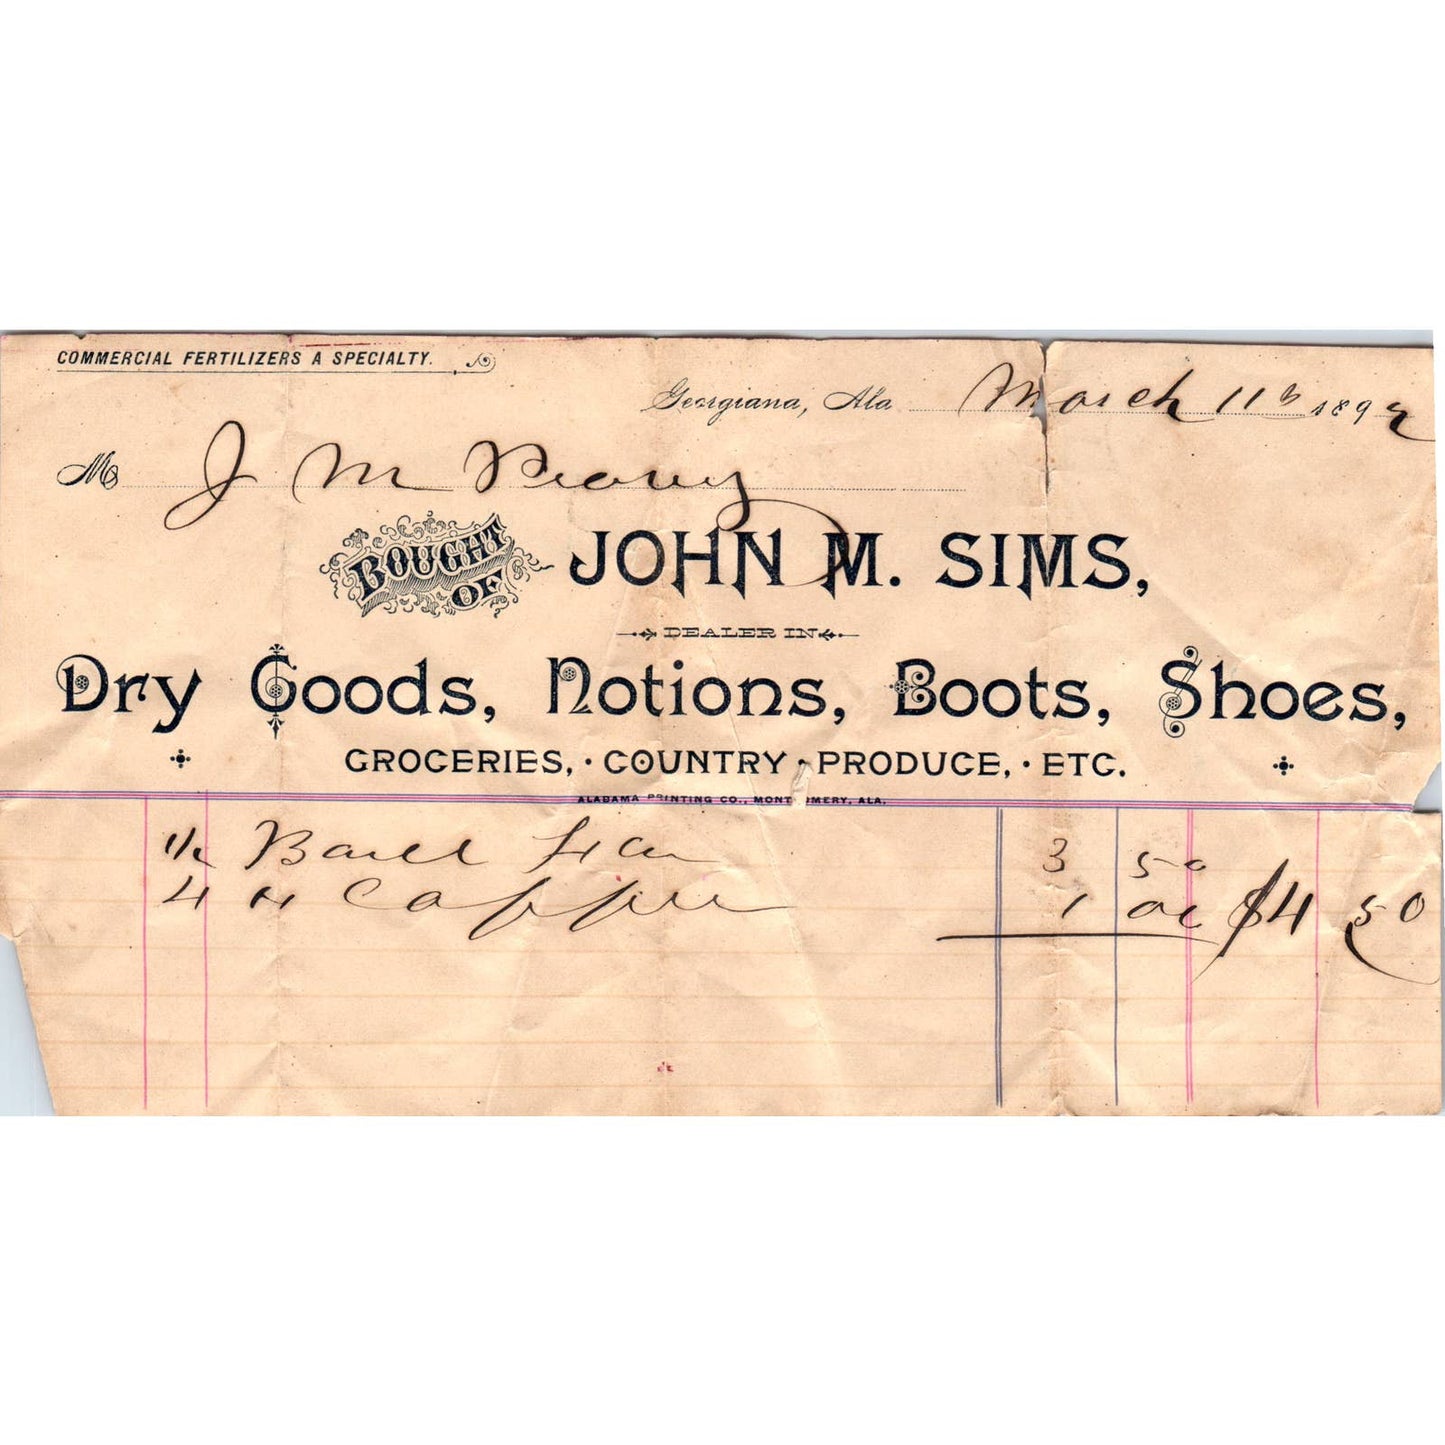 COMMERCIAL FERTILIZERS A SPECIALTY.
Georgiana, Ala March 11th 1892
M J M
BOUGHT OF JOHN M. SIMS,
DEALER IN
Dry Goods, Notions, Boots, Shoes,
GROCERIES, · COUNTRY · PRODUCE, · ETC.
ALABAMA PRINTING CO., MONTGOMERY, ALA.
1/2 3 50
4 1 00 $4 50